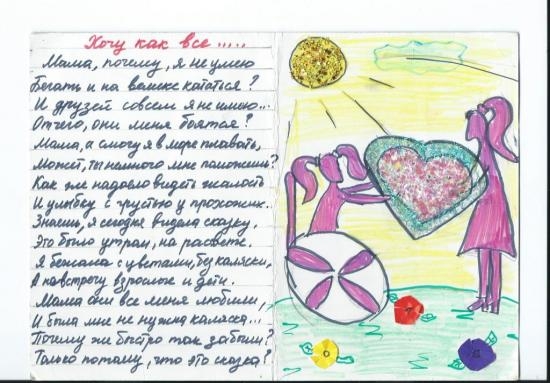 Хочу как все.....
Мама, почему, я не умею
Бегать и на велике кататься?
И друзей совсем я не имею...
Отчего, они меня боятся?
Мама, а смогу я в море плавать,
Может, ты немного мне поможешь?
Как же надоело видеть жалость
И улыбку с грустью у прохожих.
Знаешь, я сегодня видела сказку,
Это было утром, на рассвете.
Я бежала с цветами, без коляски,
А навстречу взрослые и дети.
Мама они все меня любили,
И была мне не нужна коляска...
Почему же быстро так забыли?
Только потому, что это сказка?